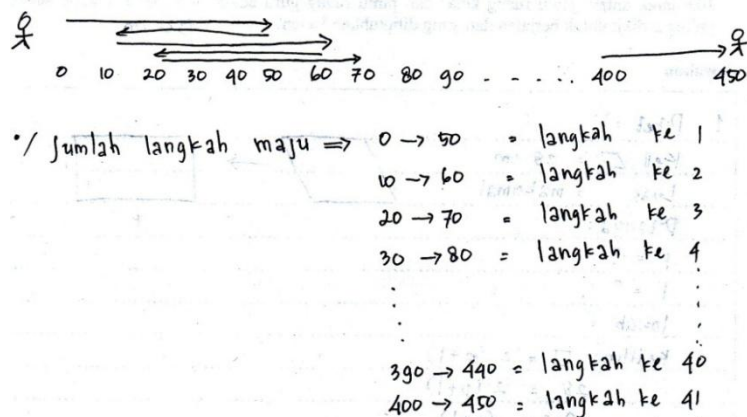 0 10 20 30 40 50 60 70 80 90 - - - - - - 400 450
•/ Jumlah langkah maju ⇒ 0 → 50 = langkah ke 1
10 → 60 = langkah ke 2
20 → 70 = langkah ke 3
30 → 80 = langkah ke 4
390 → 440 = langkah ke 40
400 → 450 = langkah ke 41